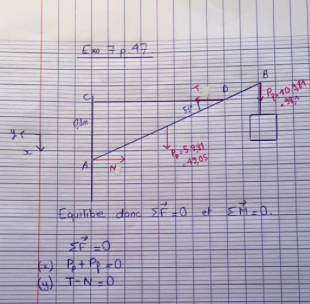 Exo 7 p.47.
B
C
T
D
Pp=10.9,81
=98,1
0,8m
y
x
Pp=5.9,81
=49,05
A
N
Equilibre donc ΣF=0 et ΣM=0.
ΣF=0
(x) Pp+Pp=0
(y) T-N=0